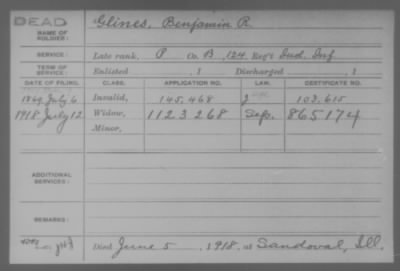 DEAD
NAME OF SOLDIER:
Glines, Benjamin R.
SERVICE:
Late rank, P Co. B, 124 Reg't Ind. Inf
TERM OF SERVICE:
Enlisted , 1 Discharged , 1
DATE OF FILING. CLASS. APPLICATION NO. LAW. CERTIFICATE NO.
1869 July 6 Invalid, 145.468 103.615
1918 July 12 Widow, 1123268 Sep. 865174
Minor,
ADDITIONAL SERVICES:
REMARKS:
Died June 5, 1918, at Sandoval, Ill.